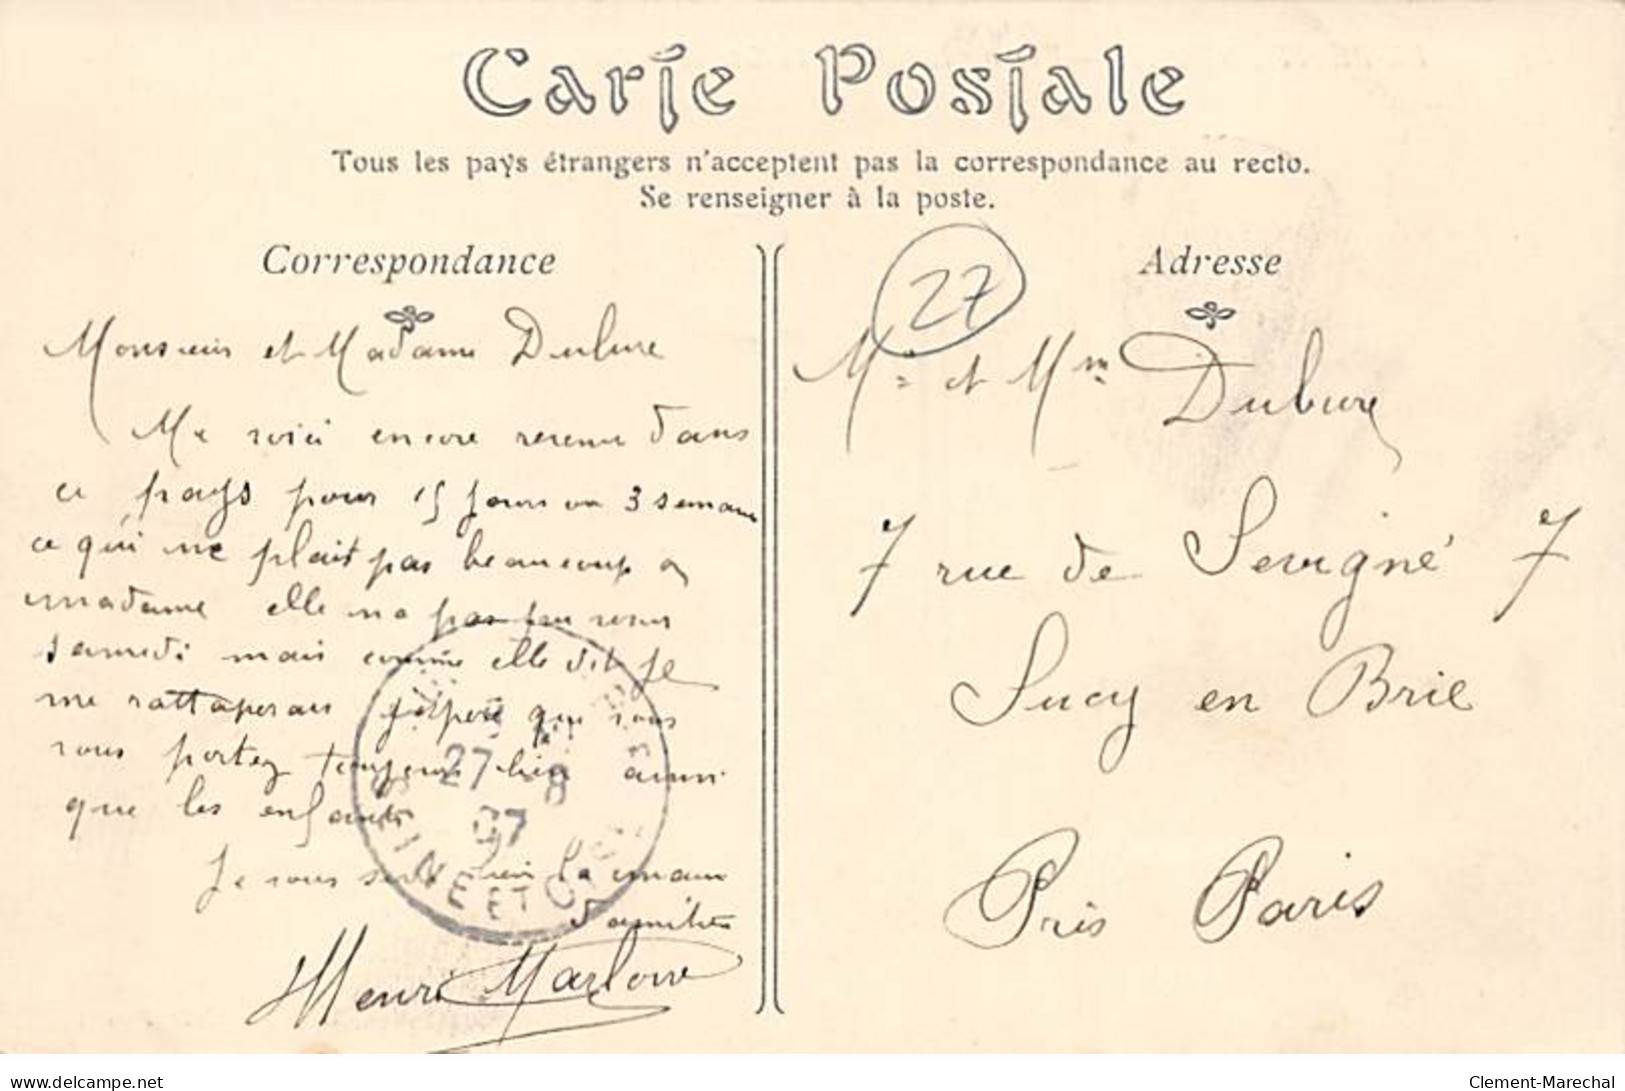 Carte Postale
Tous les pays étrangers n'acceptent pas la correspondance au recto.
Se renseigner à la poste.
Correspondance
Monsieur et Madame Dubure
Me voici encore revenu dans
ce pays pour 15 jours ou 3 semaines
ce qui ne plait pas beaucoup a
madame elle na pas pu venir
samedi mais comme elle dit je
me rattaperais j'espere que vous
vous portez toujours bien ainsi
que les enfants
Je vous serre bien la main
d'amitiés
Henri
27 8
07
SEINE ET OISE
27
Adresse
Mr et Mme Dubure
7 rue de Sevigné 7
Sucy en Brie
Près Paris
www.delcampe.net
Clement-Marechal